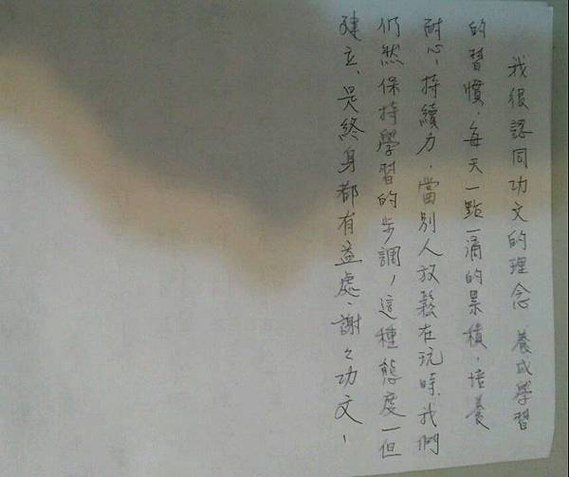 我很認同功文的理念 養成學習
的習慣，每天一點一滴的累積，培養
耐心、持續力，當別人放鬆在玩時，我們
仍然保持學習的步調，這種態度一但
建立、是終身都有益處，謝々功文，